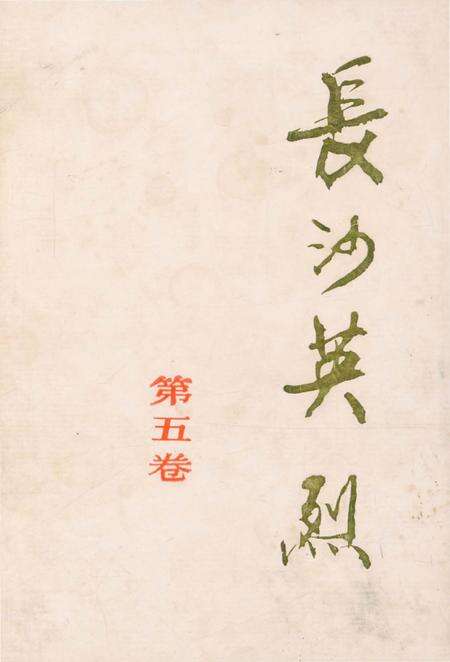 長沙英烈
第五卷